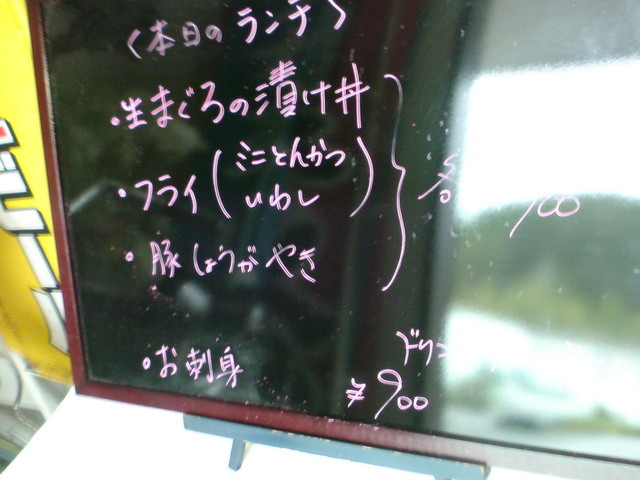 〈本日のランチ〉
・生まぐろの漬け丼
・フライ(ミニとんかつ
いわし)
各
700
・豚しょうがやき
ドリン
・お刺身 ¥900